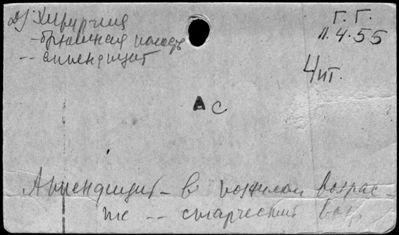 д) Хирургия
- брюшная полость
-- аппендицит
Г. Г.
11.4.55
Чит.
A c
Аппендицит - в пожилом возрас-
те -- старческий воз